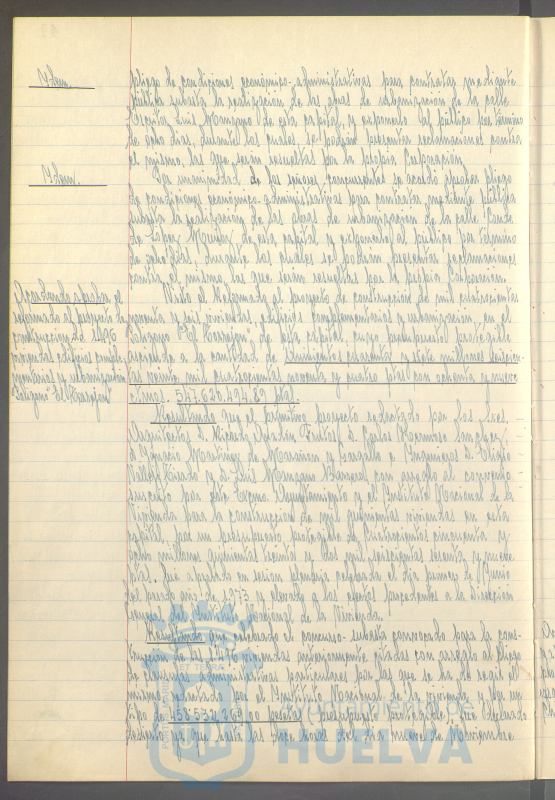 Idem.
pliego de condiciones económico-administrativas para contratar mediante
pública subasta la realización de las obras de urbanización de la calle
Doctor Luis Manzano de esta capital, y exponerlo al público por término
de ocho días, durante los cuales se podrán presentar reclamaciones contra
el mismo, las que serán resueltas por la propia Corporación.
Idem.
Por unanimidad de los señores concurrentes se acordó aprobar pliego
de condiciones económico-administrativas para contratar mediante pública
subasta la realización de las obras de urbanización de la calle Conde
de López Muñoz de esta capital, y exponerlo al público por término
de ocho días, durante los cuales se podrán presentar reclamaciones
contra el mismo, las que serán resueltas por la propia Corporación.
Acuerdando aprobar el
reformado al proyecto de
construcción de 1.496
viviendas edificios comple-
mentarios y urbanización
Polígono "El Torrejón"
Visto el Reformado al proyecto de construcción de mil cuatrocientas
noventa y seis viviendas, edificios complementarios y urbanización, en el
Polígono "El Torrejón" de esta capital, cuyo presupuesto protegible
asciende a la cantidad de Quinientos cuarenta y siete millones seiscien-
tas veinte mil cuatrocientas noventa y cuatro ptas con ochenta y nueve
ctmos. 547.620.494.89 ptas.
Resultando que el primitivo proyecto redactado por los Sres.
Arquitectos D. Ricardo Abaurre Fruto, D. Carlos
D. Ignacio Martínez de Marañón y e Ingenieros D. Eligio
Vallejo y D. Luis Manzano con arreglo al convenio
suscrito por este Excmo. Ayuntamiento y el Instituto Nacional de la
Vivienda para la construcción de mil quinientas viviendas en esta
capital, por un presupuesto protegible de Cuatrocientos cincuenta y
ocho millones quinientas treinta y dos mil seiscientas sesenta y nueve
ptas. fué aprobado en sesión plenaria celebrada el día primero de Junio
del pasado año de 1973 y elevado a los efectos procedentes a la Dirección
General del Instituto Nacional de la Vivienda.
Resultando que celebrado el concurso-subasta convocado para la cons-
trucción de las 1.496 viviendas anteriormente citadas con arreglo al Pliego
de cláusulas administrativas particulares por las que se ha de regir el
mismo, redactado por el Instituto Nacional de la Vivienda y por un
tipo de 458.532.669,00 pesetas presupuesto protegible, fué declarado
desierto ya que hasta las doce horas del día nueve de Noviembre
Ayuntamiento de
HUELVA